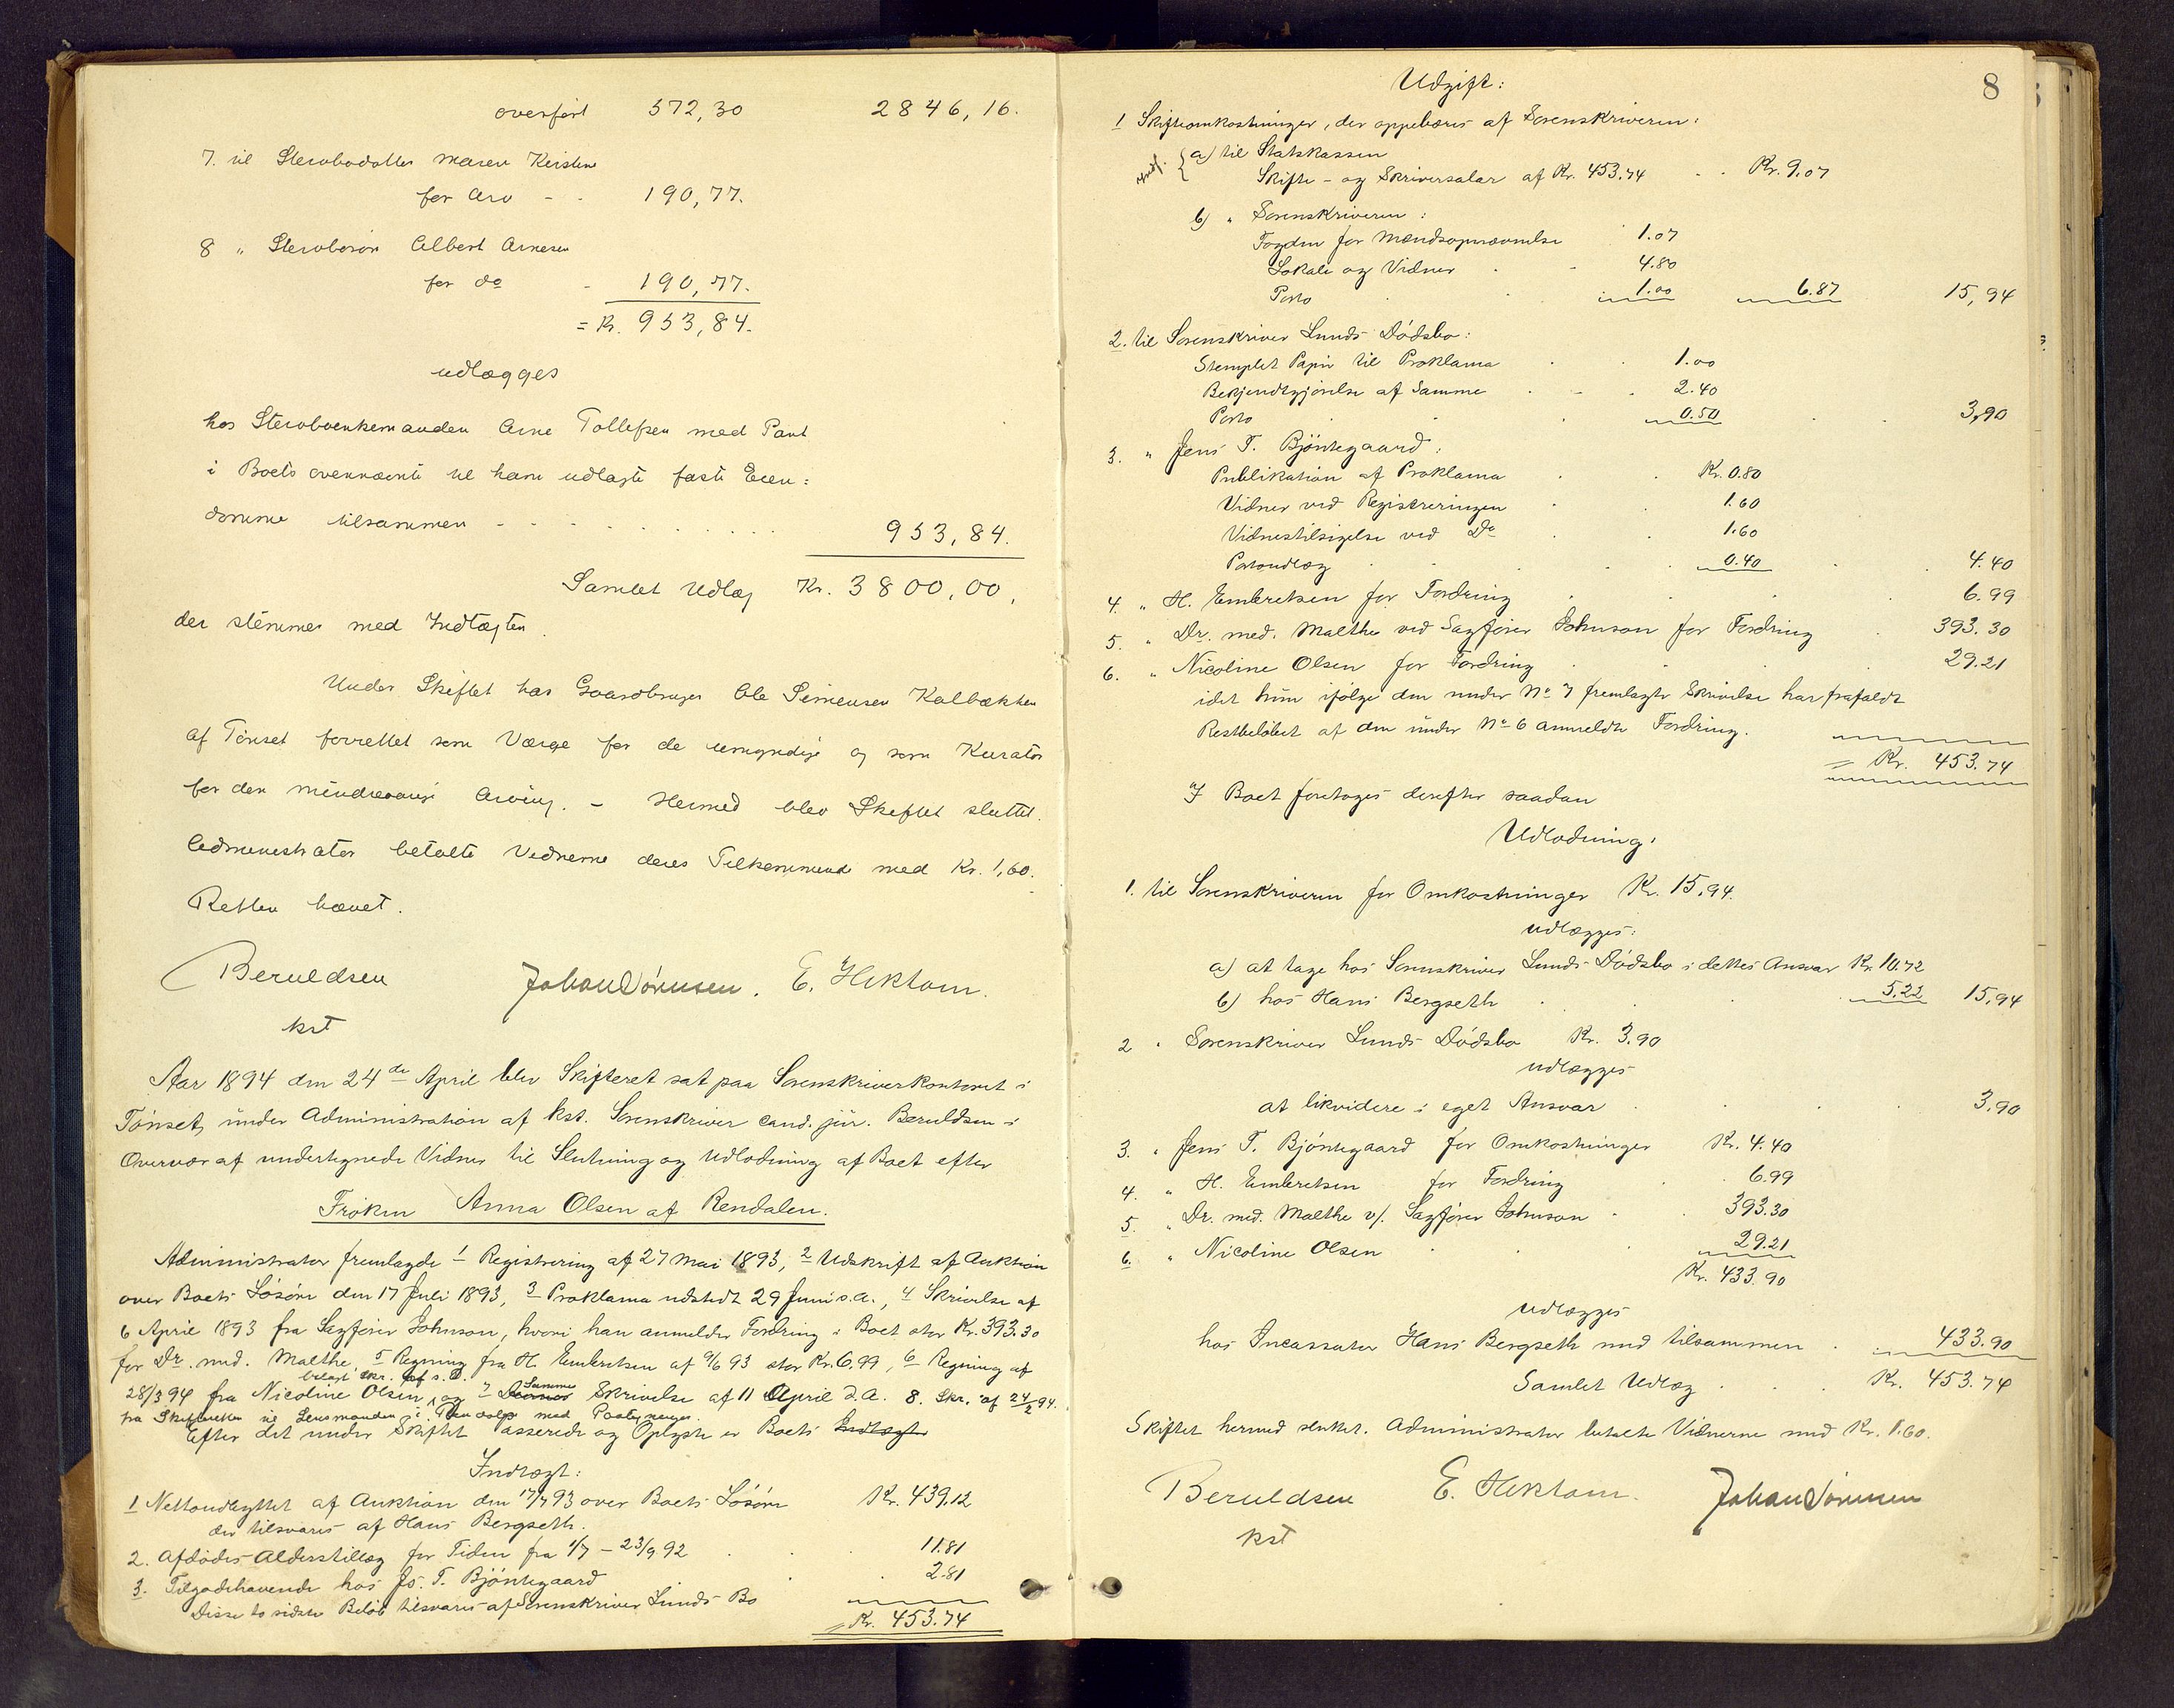 overført 572,30 2846,16.
7. til Stervbodatter Maren Kirstine
for Arv - - 190,77.
8 " Stervbosøn Albert Arnesen
for do - 190,77.
= Kr. 953,84.
udlægges
hos Stervboenkemanden Arne Tollefsen med Pant
i Boets ovennævnte til ham udlagte faste Eien=
domme tilsammen - - - - 953,84.
Samlet Udlæg Kr. 3800,00,
der stemmer med Indtægten.
Under Skiftet har Gaardbruger Ole Simensen Kalbækken
af Tønset forrettet som Værge for de umyndige og som Kurator
for den mindreaarige Arving. - Hermed blev Skiftet sluttet.
Administrator betalte Vidnerne deres Tilkommende med Kr. 1,60.
Retten hævet.
Beruldsen Johan Sørensen. E. Hektoen.
kst
Aar 1894 den 24de April blev Skifteret sat paa Sorenskriverkontoret i
Tønset, under Administration af kst. Sorenskriver cand. jur. Beruldsen i
Overvær af undertegnede Vidner til Slutning og Udlodning af Boet efter
Frøken Anna Olsen af Rendalen.
Administrator fremlagde 1 Registrering af 27 Mai 1893, 2 Udskrift af Auktion
over Boets Løsøre den 17 Juli 1893, 3 Proklama udstedt 29 Juni s.a., 4 Skrivelse af
6 April 1893 fra Sagfører Johnson, hvori han anmelder Fordring i Boet stor Kr. 393.30
for Dr. med. Malthe, 5 Regning fra H. Embretsen af 9/6 93 stor Kr. 6.99, 6 Regning af
28/3 94 fra Nicoline Olsen, og 7 Samme Skrivelse af 11 April d.A. 8. Skr. af 24/2 94.
fra Skifteretten til Lensmanden i Rendalen med Paategninger.
Efter det under Skiftet Passerede og Oplyste er Boets Indtægter
Indtægt:
1 Nettoudbyttet af Auktion den 17/7 93 over Boets Løsøre Kr. 439.12
der tilsvares af Hans Bergseth.
2. Afdødes Alderstillæg for Tiden fra 1/7 - 23/9 92 11.81
3. Tilgodehavende hos Js. T. Bjöntegaard 2.81
Disse to sidste Beløb tilsvares af Sorenskriver Lunds Bo
= Kr. 453.74
8
Udgift:
1 Skifteomkostninger, der oppebæres af Sorenskriveren:
a) til Statskassen
Skifte- og Skriversalær af Kr. 453.74 - . Kr. 9.07
b) " Sorenskriveren:
Fogden for Mandsopnævnelse 1.07
Lokale og Vidner . - 4.80
Porto 1.00 6.87 15,94
2. til Sorenskriver Lunds Dødsbo:
Stemplet Papir til Proklama 1.00
Bekjendtgjørelse af Samme 2.40
Porto 0.50 3,90
3. " Jens T. Bjöntegaard:
Publikation af Proklama Kr. 0.80
Vidner ved Registreringen 1.60
Vidnestilsigelse ved Do 1.60
Portoudlæg 0.40 4.40
4. " H. Embretsen for Fordring 6.99
5. " Dr. med. Malthe ved Sagfører Johnson for Fordring 393.30
6. " Nicoline Olsen for Fordring 29.21
idet hun ifølge den under No 7 fremlagte Skrivelse har frafaldt
Restbeløbet af den under No 6 anmeldte Fordring.
= Kr. 453.74
I Boet foretoges derefter saadan
Udlodning:
1. til Sorenskriveren for Omkostninger Kr. 15,94.
udlægges:
a) at tage hos Sorenskriver Lunds Dødsbo i dettes Ansvar Kr. 10.72
b) hos Hans Bergseth 5.22 15,94
2 " Sorenskriver Lunds Dødsbo Kr. 3.90
udlægges
at likvidere i eget Ansvar 3.90
3. " Jens T. Bjöntegaard for Omkostninger Kr. 4.40
4. " H. Embretsen for Fordring 6.99
5. " Dr. med. Malthe v/. Sagfører Johnson 393.30
6. " Nicoline Olsen 29.21
Kr. 433.90
udlægges
hos Incassator Hans Bergseth med tilsammen 433.90
Samlet Udlæg Kr. 453.74
Skiftet hermed sluttet. Administrator betalte Vidnerne med Kr. 1.60.
Beruldsen E. Hektoen. Johan Sørensen
kst